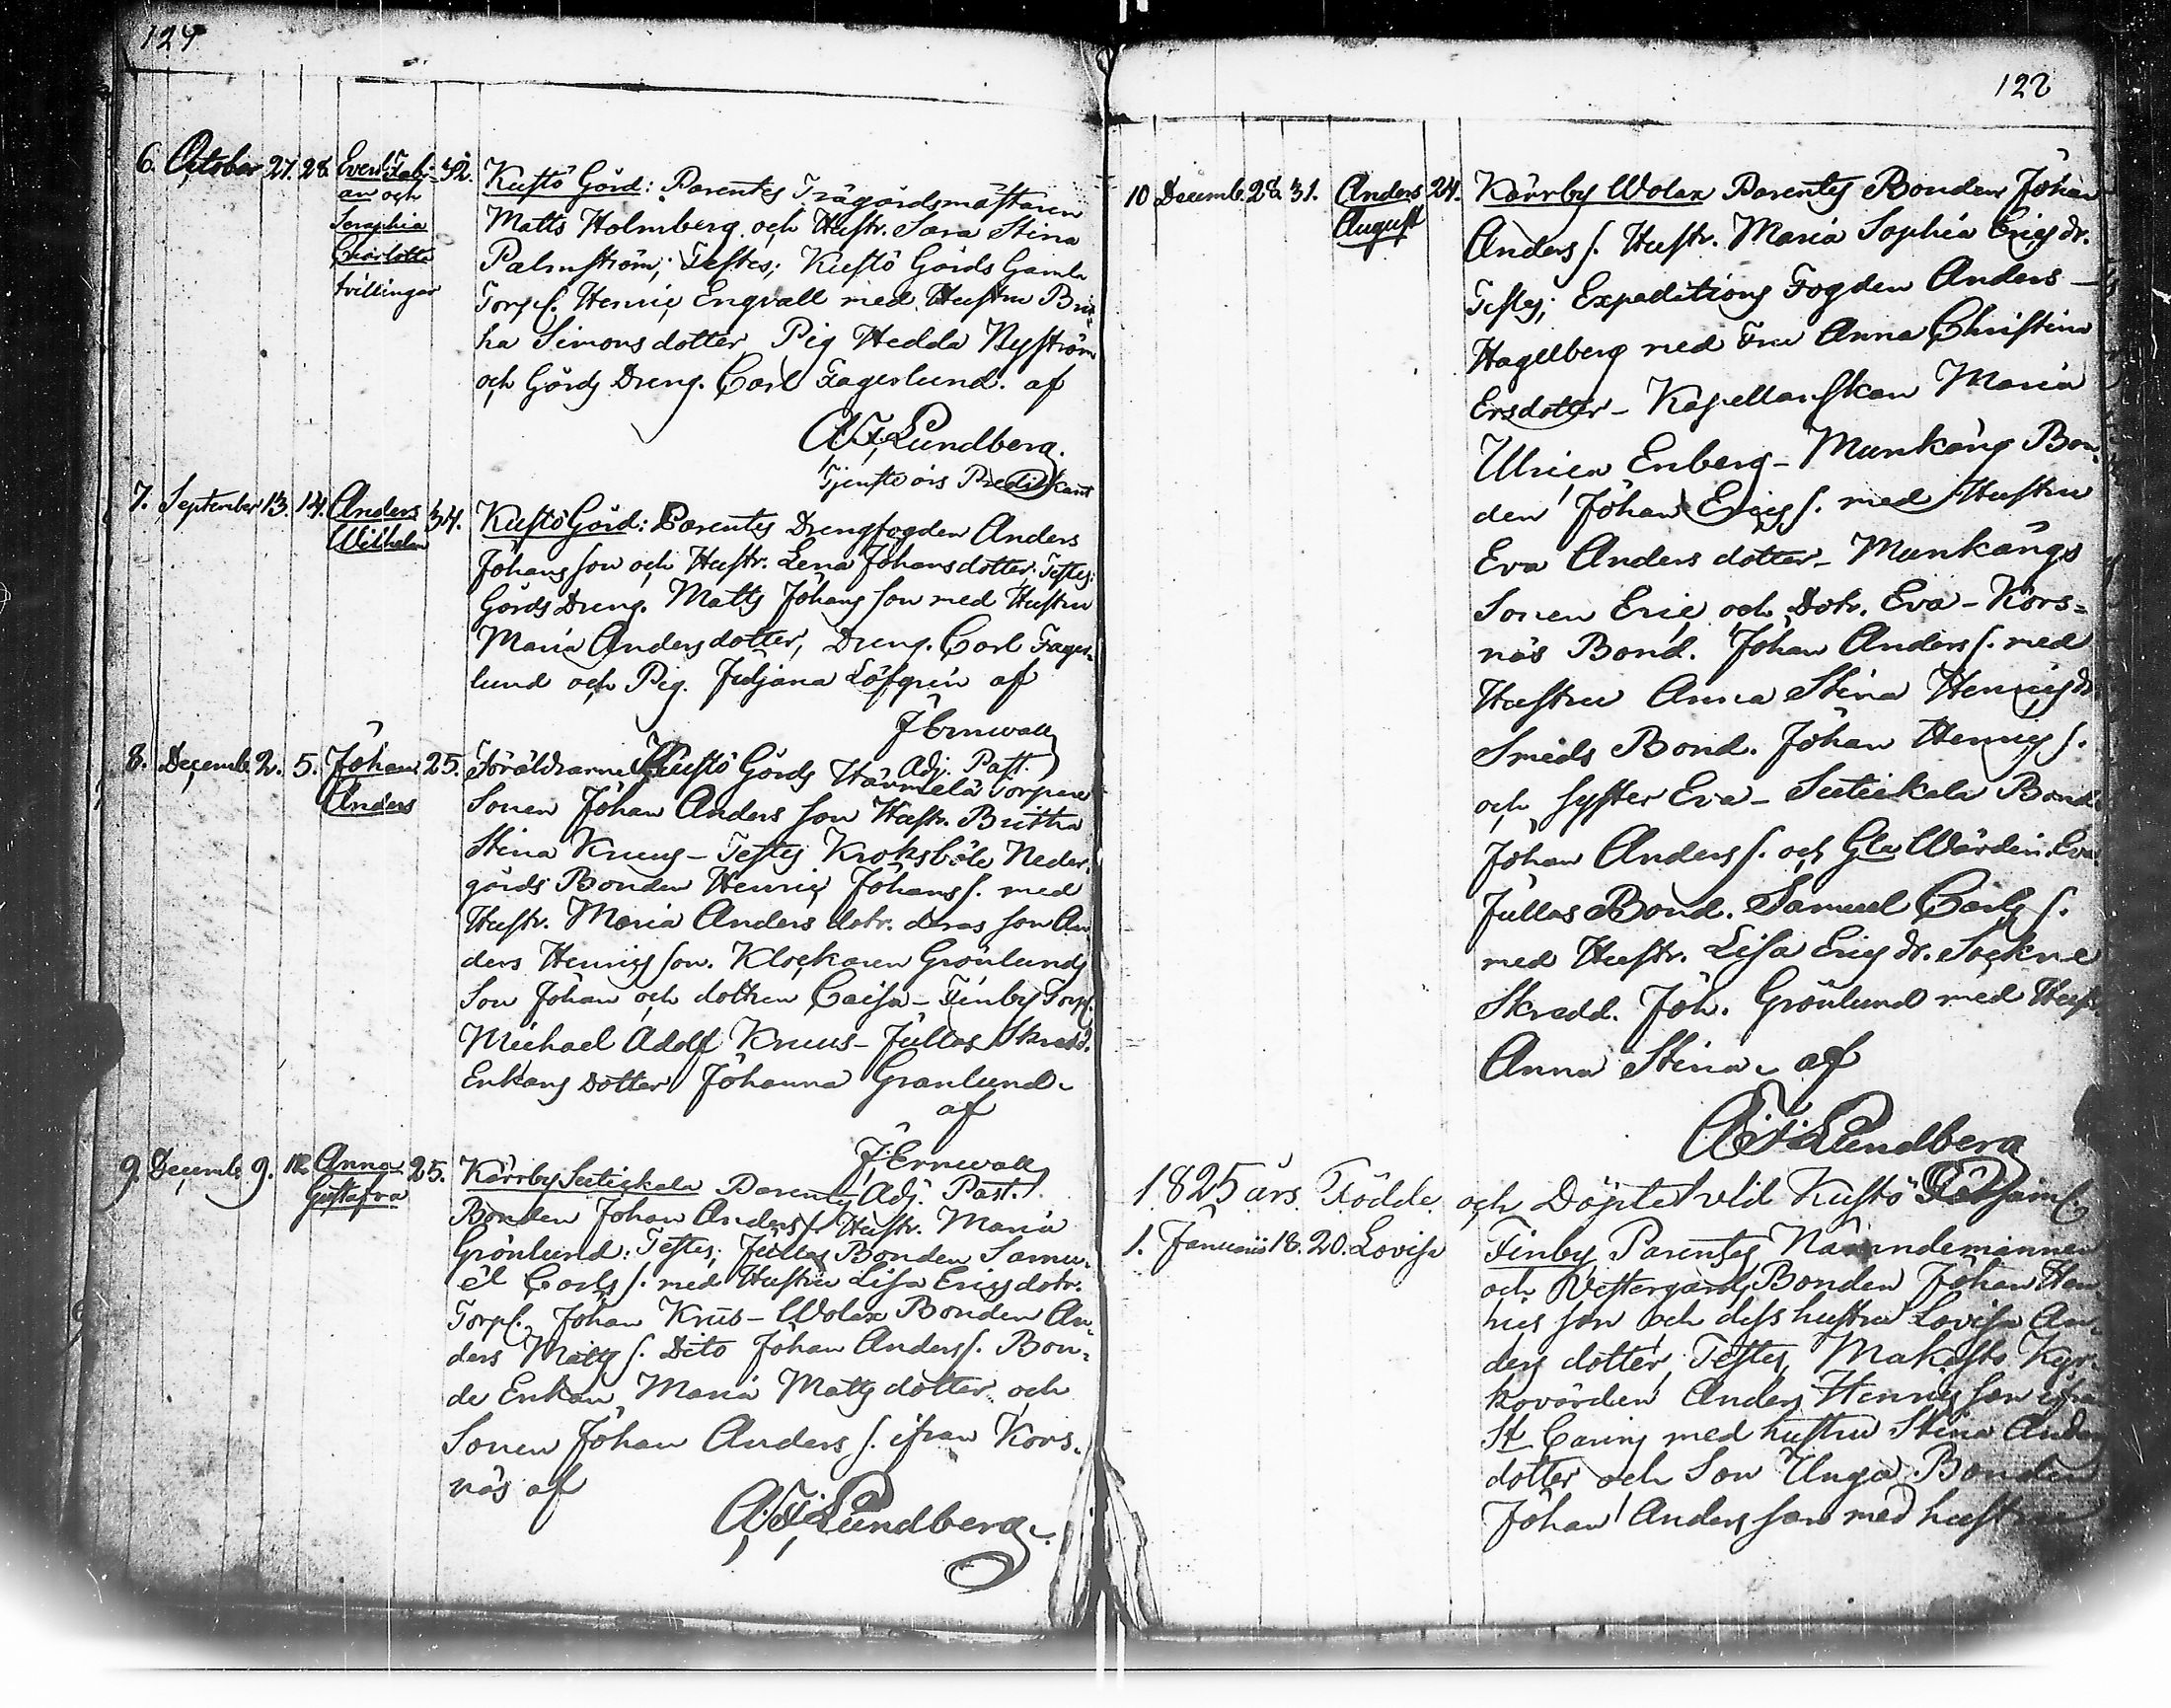 124
6. October 27. 28. Evert Fabi- 32. Kustö Gård: Parentes Trägårdsmästaren
an och
Seraphia
Charlotta
tvillingar
Matts Holmberg och Hustr. Sara Stina
Palmström; Testes; Kustö Gårds Gamla
Torp. Henric Engvall med Hustru Brit-
ha Simons dotter Pig Hedda Nyström
och Gårds Dreng. Carl Fagerlund. af
A. F. Lundberg.
Tjenste års Predikant
7. September 13. 14. Anders 34. Kustö Gård: Parentes Drengfogden Anders
Wilhelm
Johansson och Hustr. Lena Johansdotter. Testes:
Gårds Dreng. Matts Johans son med Hustru
Maria Andersdotter, Dreng. Carl Fager-
lund och Pig. Juljana Löfgrén af
J Ernwall
Adj. Past.
8. Decemb. 2. 5. Johan 25. Föräldrarne Kustö Gårds Härmälä Torpare
Anders
Sonen Johan Anders son Hustr. Britha
Stina Kruus - Testes Kroksböle Neder-
gårds Bonden Henric Johans s. med
Hustr. Maria Anders dotr. deras son An-
ders Henrics son. Klockaren Grönlunds
Son Johan och dottren Caisa - Finby Torp.
Michael Adolf Kruus - Jullas Skradd.
Enkans Dotter Johanna Granlund.
af
J. Ernwall
Adj. Past.
9. Decemb. 9. 12. Anna 25. Kärrby Sutickala Parentes
Gustafva
Bonden Johan Anders s. Hustr. Maria
Grönlund: Testes; Jullas Bonden Samu-
el Carls s. med Hustru Lisa Ericsdotr.
Torp. Johan Krus - Wolax Bonden An-
ders Matts s. Dito Johan Anders s. Bon-
de Enkan Maria Matts dotter och
Sonen Johan Anders s. ifran Kors-
näs af
A. F. Lundberg.
122
10 Decemb. 28. 31. Anders 24. Kärrby Wolax Parentes Bonden Johan
August
Anders s. Hustr. Maria Sophia Erics dr.
Testes; Expeditions Fogden Anders -
Hagelberg med Fru Anna Christina
Ersdotter - Kapellanskan Maria
Ulrica Enberg - Munkängs Bon-
den Johan Erics s. med Hustru
Eva Anders dotter - Munkängs
Sonen Eric och Dotr. Eva - Kors-
näs Bond. Johan Anders s. med
Hustru Anna Stina Henrics dr
Smeds Bond. Johan Henrics s.
och syster Eva - Sutickala Bond.
Johan Anders s. och Gla Wärdin. Eva
Jullas Bond. Samuel Carls s.
med Hustr. Lisa Erics dr. Sockne
Skradd. Joh. Grönlund med Hust.
Anna Stina. af
A. F. Lundberg
1825 års Födde och Döpte vid Kustö
1. Januarii 18. 20. Lovisa Finby Parentes Nämndemannen
och Westergårds Bonden Johan Hen
rics son och dess hustru Lovisa An-
ders dotter, Testes, Makasto Kyr-
kovärden Anders Henrics son ifrån
St Carins med hustru Stina Anders
dotter och Son Unga Bonden
Johan Anders son med hustru